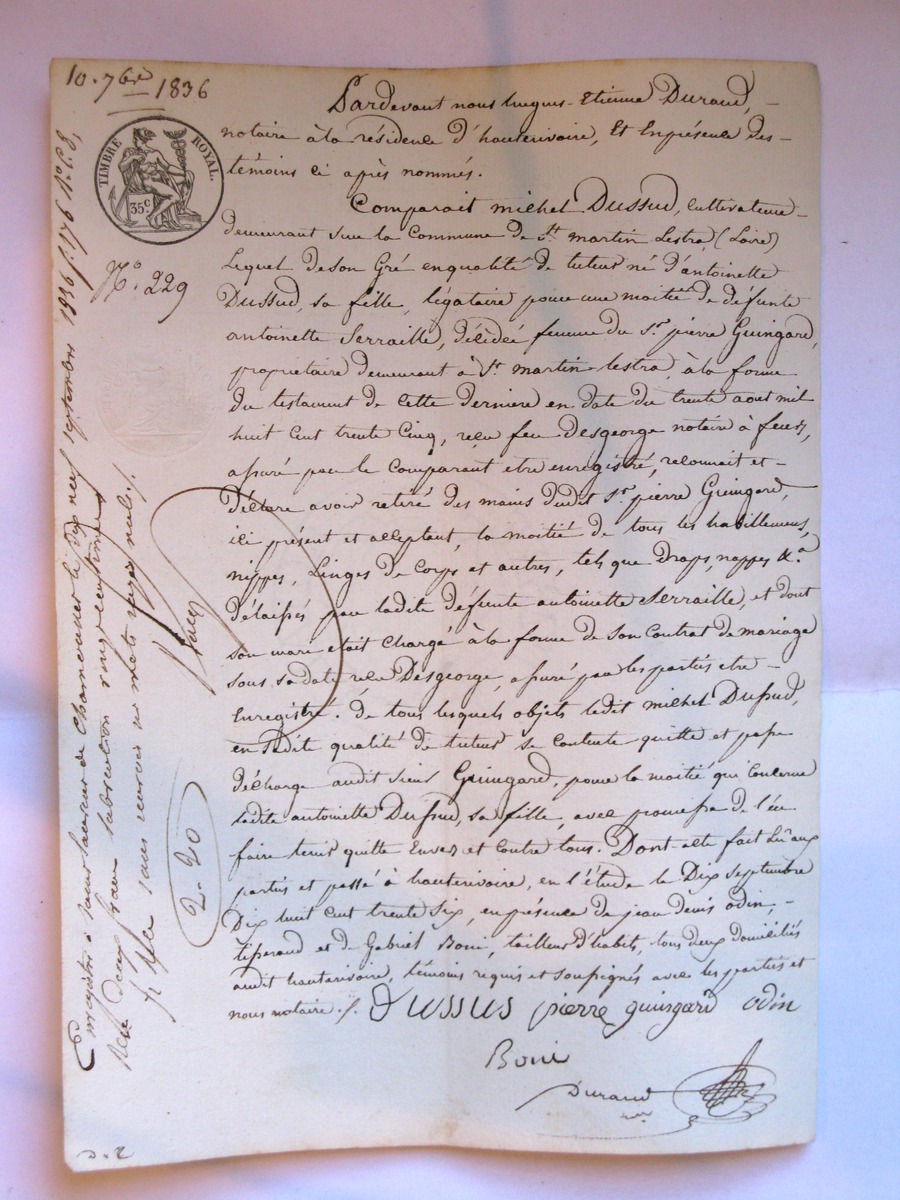 10. 7bre 1836
TIMBRE ROYAL.
35c
No. 229
Pardevant nous hugues-Etienne Durand,
notaire à la résidence d'hauterivoire, Et En présence des
témoins ci après nommés.
Comparait michel Dussud, Cultivateur
demeurant sur la Commune de St. martin Lestra, (Loire)
Lequel de son Gré en qualité de tuteur né d'antoinette
Dussud, sa fille, légataire pour une moitié de défunte
antoinette Serraille, décédée femme du Sr. pierre Guingard,
propriétaire demeurant à St. martin lestra, à la forme
du testament de cette dernière en date du trente aout mil
huit cent trente Cinq, reçu feu Desgeorge notaire à feurs,
assuré par le Comparant etre enregistré, reconnait et
déclare avoir retiré des mains dudit Sr. pierre Guingard,
ici présent et acceptant, la moitié de tous les habillemens,
nippes, Linges de Corps et autres, tels que draps, nappes &a.
délaissés par ladite défunte antoinette Serraille, et dont
son mari etait Chargé à la forme de son Contrat de mariage
sous sa date reçu Desgeorge, assuré par les parties etre
Enregistré. de tous lesquels objets ledit michel Dussud,
en sadite qualité de tuteur se contente quitte et passe
décharge audit sieur Guingard, pour la moitié qui Concerne
ladite antoinette Dussud, sa fille, avec promesse de l'en
faire tenir quitte Envers et Contre tous. Dont acte fait Lu aux
parties et passé à hauterivoire, en l'étude le Dix septembre
Dix huit cent trente Six, en présence de jean denis odin,
tisserand et de Gabriel Boni, tailleur d'habits, tous deux domiciliés
audit hauterivoire, témoins requis et soussignés avec les parties et
nous notaire ./.
Dussus pierre guingard odin
Boni
Durand
nre
Enregistré à Saint Laurent de Chamousset le dix neuf septembre 1836 f. 176 Ro. C. 8,
reçu deux francs subvention vingt centimes
sans renvoi ni mots rayés nuls ./.
2-20